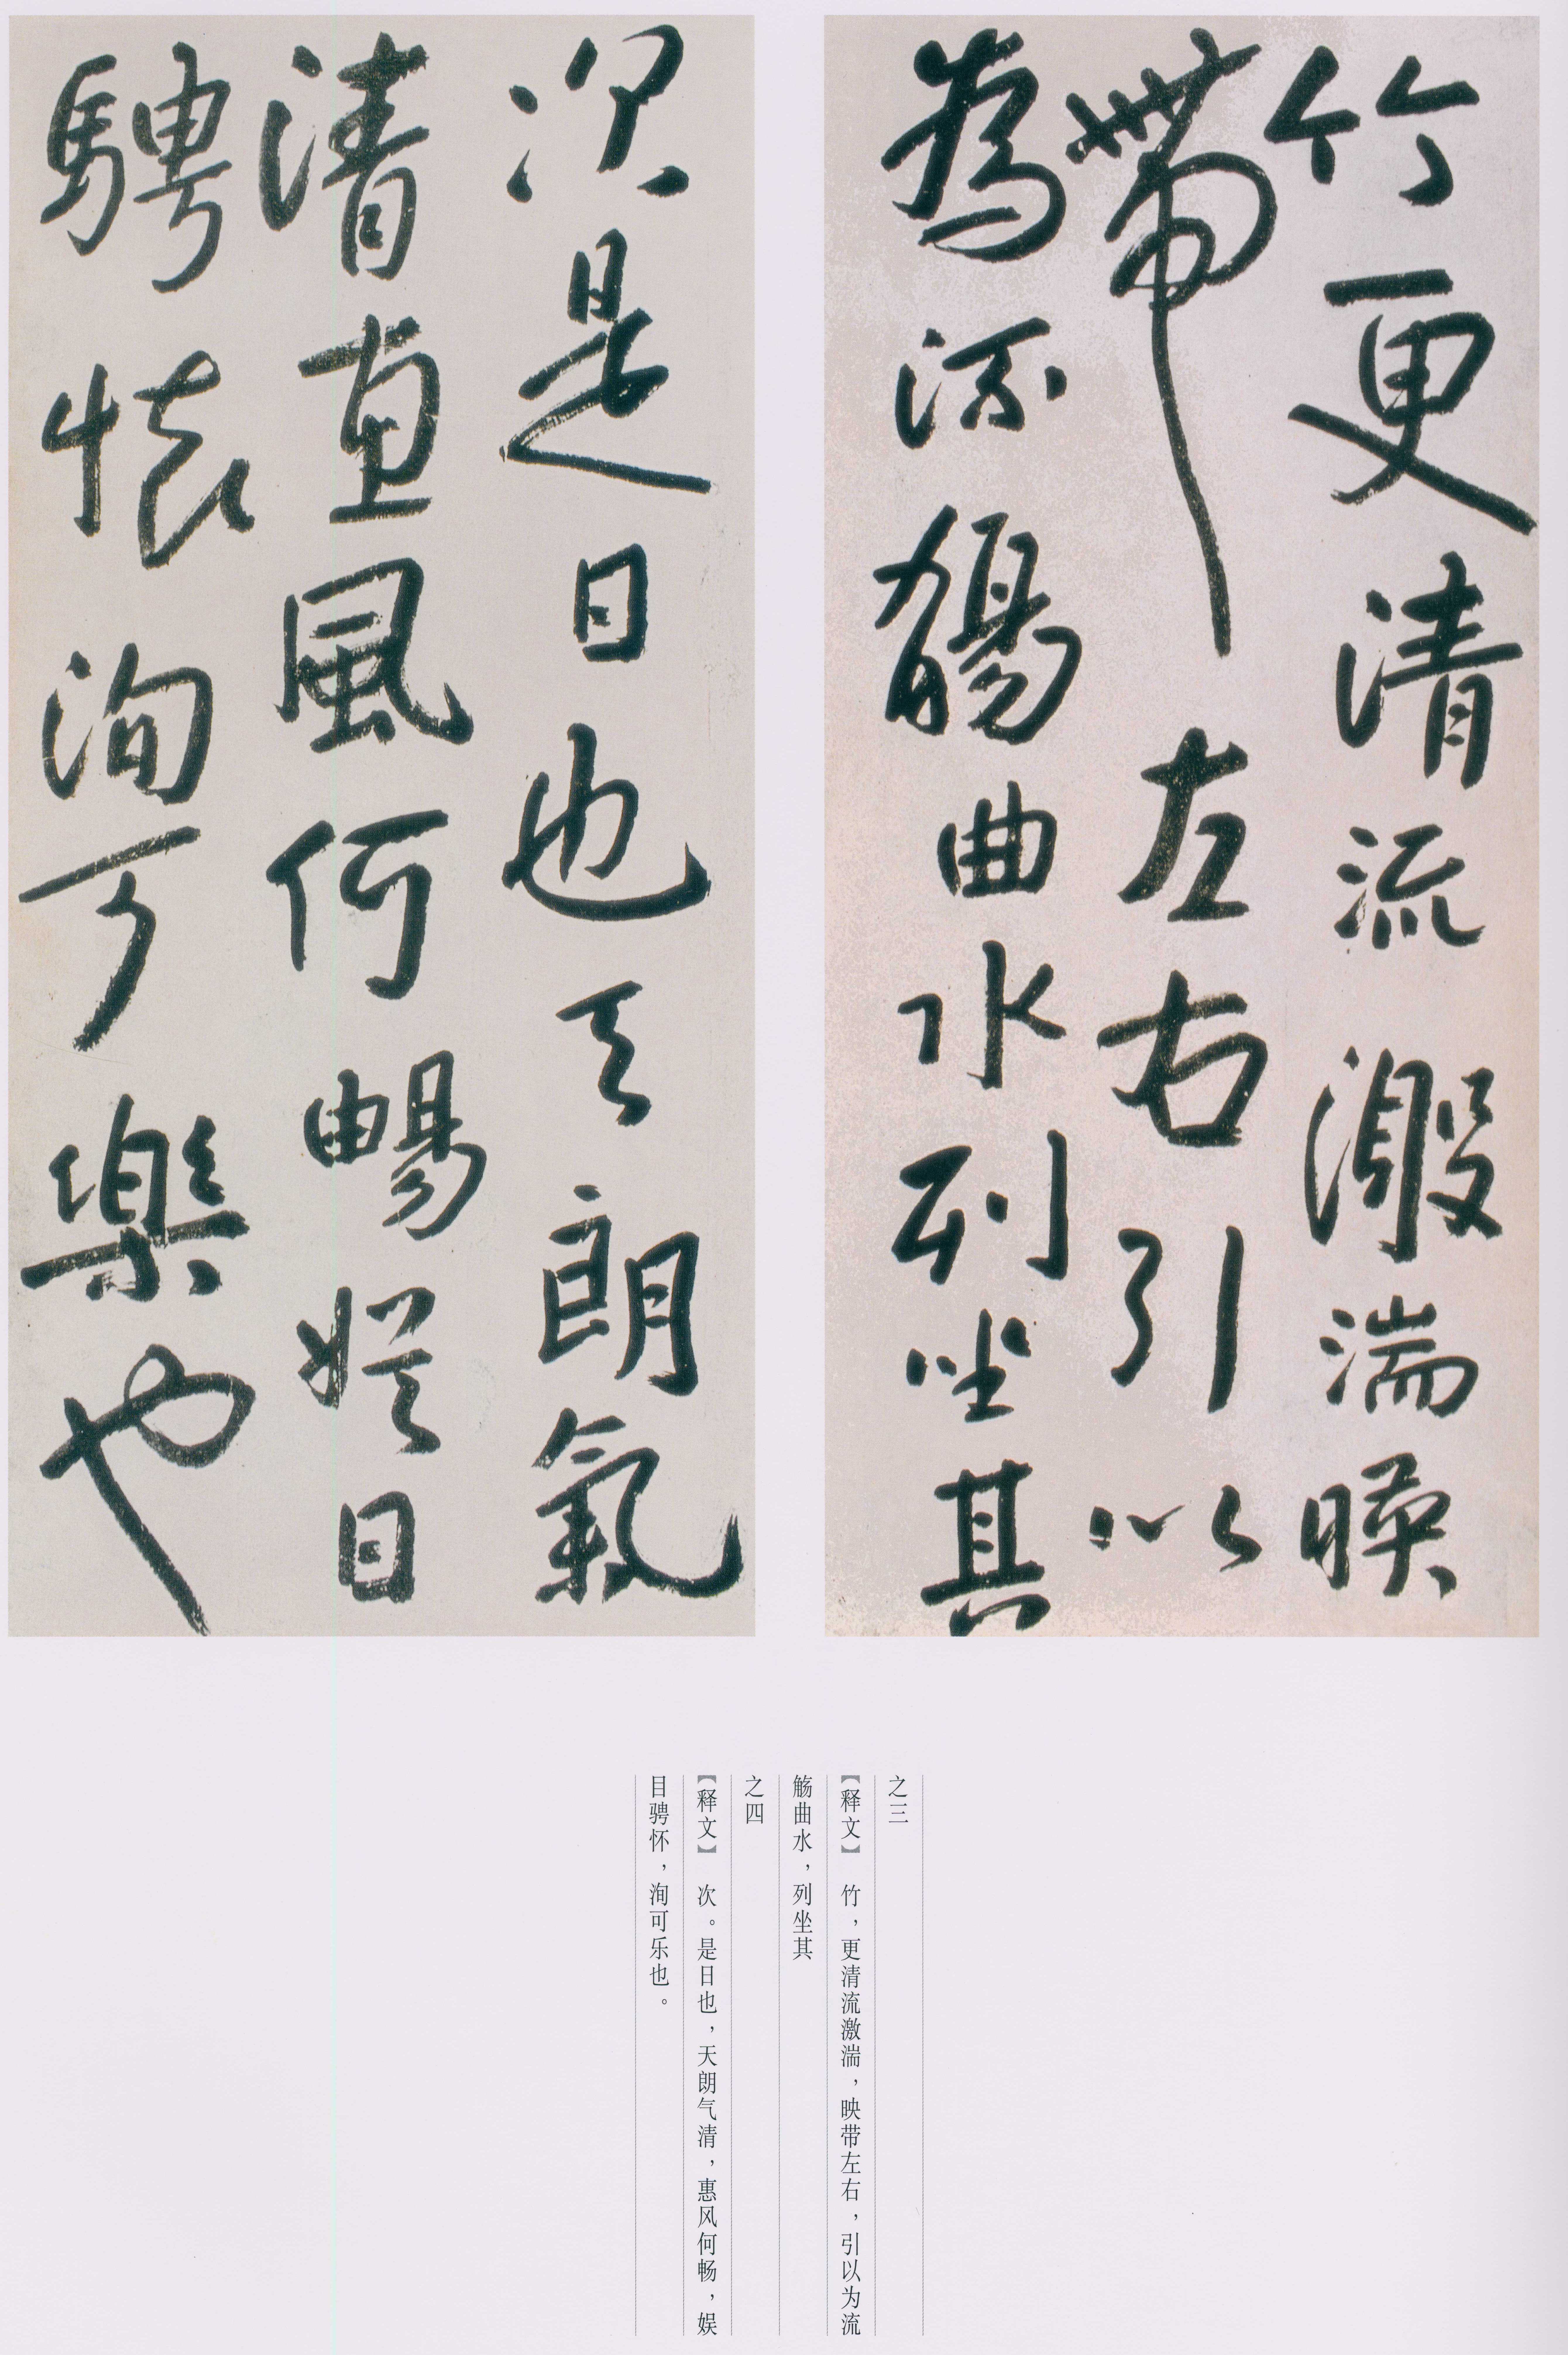 竹更清流激湍暎
帶左右引以
為流觴曲水列坐其
次是日也天朗氣
清惠風何暢娱日
騁懷洵可樂也
之三
【释文】 竹，更清流激湍，映带左右，引以为流
觞曲水，列坐其
之四
【释文】 次。是日也，天朗气清，惠风何畅，娱
目骋怀，洵可乐也。